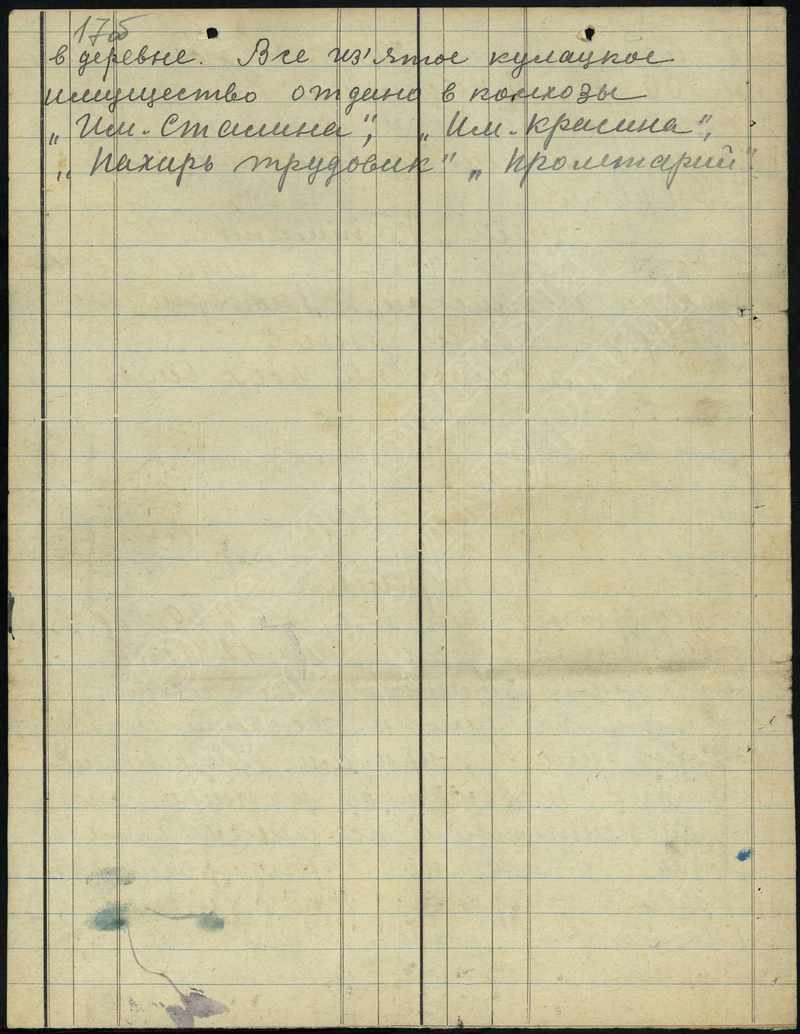 17об
в деревне. Все из'ятое кулацкое
имущество отдано в колхозы
„Им. Сталина", „Им. Красина",
„Пахарь трудовик" „Пролетарий".